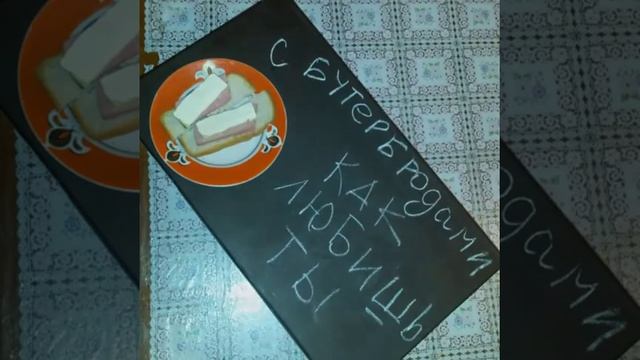 С БУТЕРБРОДАМИ
КАК
ЛЮБИШЬ
ТЫ